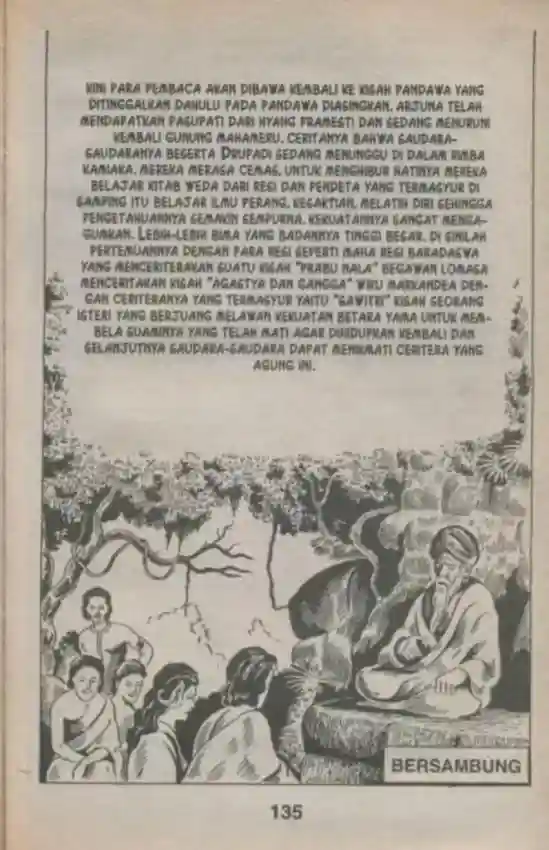 KINI PARA PEMBACA AKAN DIBAWA KEMBALI KE KISAH PANDAWA YANG
DITINGGALKAN DAHULU PADA PANDAWA DIASINGKAN. ARJUNA TELAH
MENDAPATKAN PASUPATI DARI HYANG PRAMESTI DAN SEDANG MENURUNI
KEMBALI GUNUNG MAHAMERU. CERITANYA BAHWA SAUDARA-
SAUDARANYA BESERTA DRUPADI SEDANG MENUNGGU DI DALAM RIMBA
KAMIAKA. MEREKA MERASA CEMAS. UNTUK MENGHIBUR HATINYA MEREKA
BELAJAR KITAB WEDA DARI RESI DAN PENDETA YANG TERMASYUR DI
SAMPING ITU BELAJAR ILMU PERANG, KESAKTIAN, MELATIH DIRI SEHINGGA
PENGETAHUANNYA SEMAKIN SEMPURNA. KEKUATANNYA SANGAT MENGA-
GUMKAN. LEBIH-LEBIH BIMA YANG BADANNYA TINGGI BESAR. DI SINILAH
PERTEMUANNYA DENGAN PARA RESI SEPERTI MAHA RESI BARADASWA
YANG MENCERITERAKAN SUATU KISAH "PRABU NALA" BEGAWAN LOMASA
MENCERITAKAN KISAH "AGASTYA DAN GANGGA" WIKU MARKANDEA DEN-
GAN CERITERANYA YANG TERMASYUR YAITU "SAWITRI" KISAH SEORANG
ISTERI YANG BERJUANG MELAWAN KEKUATAN BETARA YAMA UNTUK MEM-
BELA SUAMINYA YANG TELAH MATI AGAR DIHIDUPKAN KEMBALI DAN
SELANJUTNYA SAUDARA-SAUDARA DAPAT MENIKMATI CERITERA YANG
AGUNG INI.
BERSAMBUNG
135